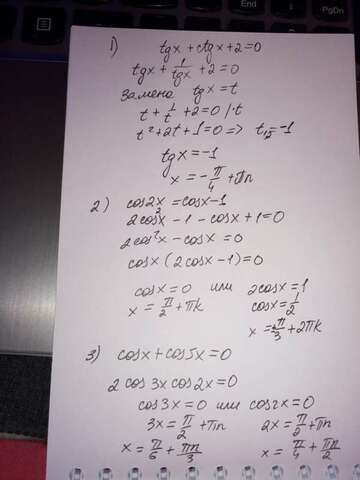 End
PgDn
1)
tgx + ctgx + 2 = 0
tgx + 1/tgx + 2 = 0
Замена tgx = t
t + 1/t + 2 = 0 |·t
t² + 2t + 1 = 0 => t₁,₂ = -1
tgx = -1
x = -π/4 + πn
2) cos2x = cosx - 1
2cos²x - 1 - cosx + 1 = 0
2cos²x - cosx = 0
cosx (2cosx - 1) = 0
cosx = 0 или 2cosx = 1
x = π/2 + πk cosx = 1/2
x = π/3 + 2πk
3) cosx + cos5x = 0
2 cos 3x cos 2x = 0
cos3x = 0 или cos2x = 0
3x = π/2 + πn 2x = π/2 + πn
x = π/6 + πn/3 x = π/4 + πn/2